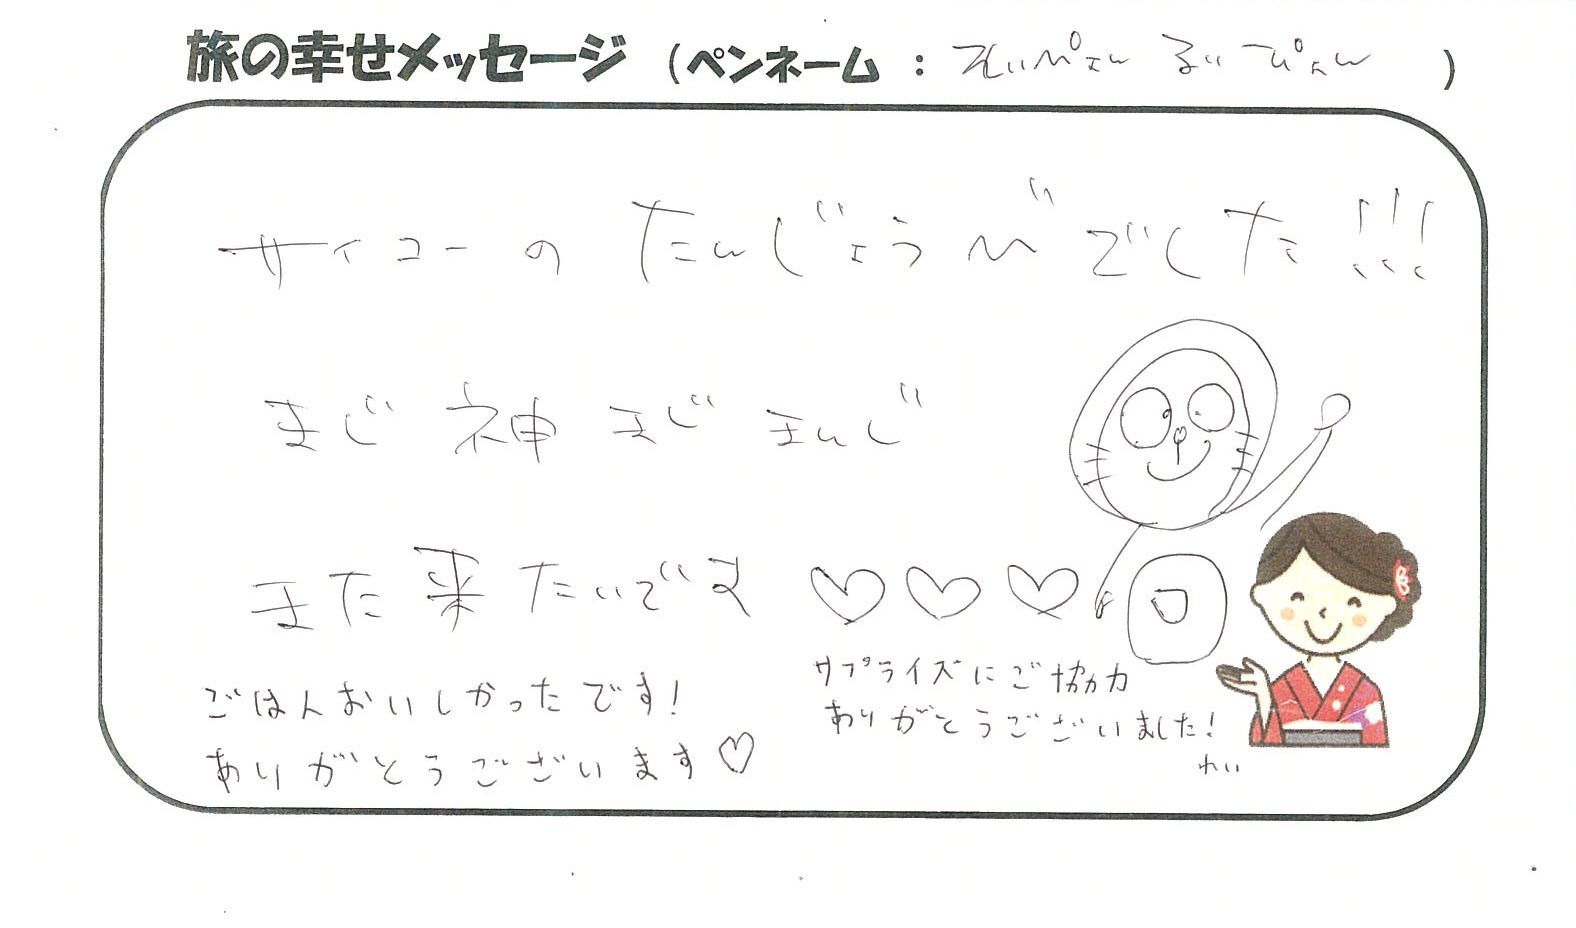 旅の幸せメッセージ (ペンネーム : れいぴょん るいぴょん )
サイコーの たんじょうびでした!!!
まじ 神 まじ まんじ
また 来たいです ♡♡♡
サプライズにご協力
ありがとうございました!
れい
ごはんおいしかったです!
ありがとうございます♡